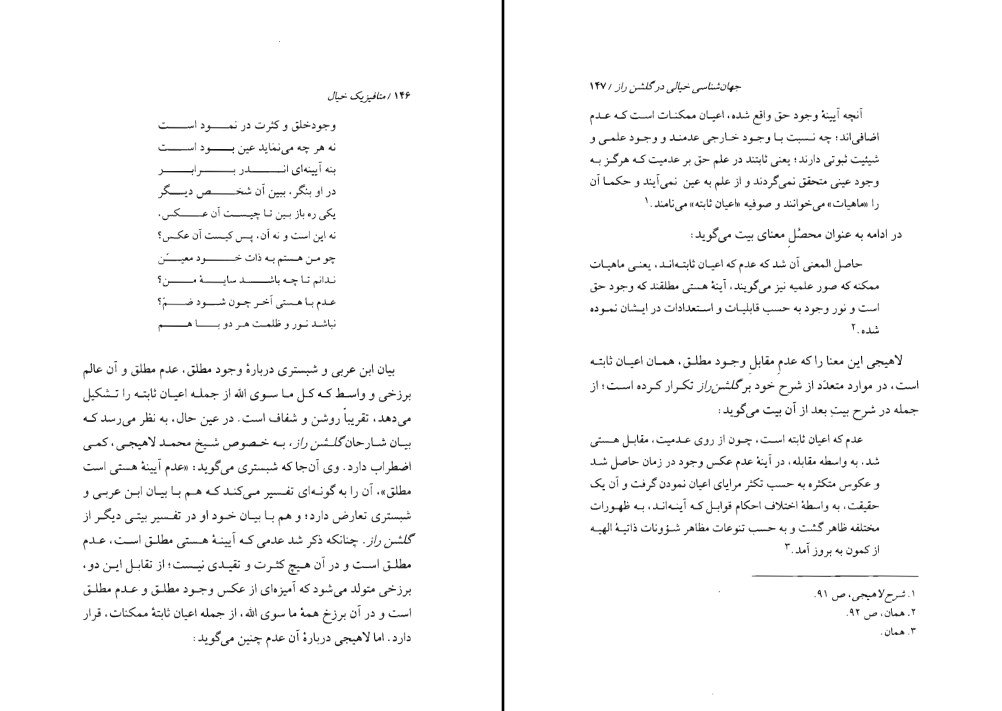 ۱۴۶ / متافیزیک خیال
وجود خلق و کثرت در نمود است
نه هر چه می‌نماید عین بود است
بنه آیینه‌ای اندر برابر
در او بنگر، ببین آن شخص دیگر
یکی ره باز بین تا چیست آن عکس،
نه این است و نه آن، پس کیست آن عکس؟
چو من هستم به ذات خود معین
ندانم تا چه باشد سایهٔ من؟
عدم با هستی آخر چون شود ضم؟
نباشد نور و ظلمت هر دو با هم
بیان ابن عربی و شبستری دربارهٔ وجود مطلق، عدم مطلق و آن عالم
برزخی و واسط که کل ما سوی الله از جمله اعیان ثابته را تشکیل
می‌دهد، تقریباً روشن و شفاف است. در عین حال، به نظر می‌رسد که
بیان شارحان گلشن راز، به خصوص شیخ محمد لاهیجی، کمی
اضطراب دارد. وی آن‌جا که شبستری می‌گوید: «عدم آیینهٔ هستی است
مطلق»، آن را به گونه‌ای تفسیر می‌کند که هم با بیان ابن عربی و
شبستری تعارض دارد؛ و هم با بیان خود او در تفسیر بیتی دیگر از
گلشن راز. چنانکه ذکر شد عدمی که آیینهٔ هستی مطلق است، عدم
مطلق است و در آن هیچ کثرت و تقیدی نیست؛ از تقابل این دو،
برزخی متولد می‌شود که آمیزه‌ای از عکس وجود مطلق و عدم مطلق
است و در آن برزخ همهٔ ما سوی الله، از جمله اعیان ثابتهٔ ممکنات، قرار
دارد. اما لاهیجی دربارهٔ آن عدم چنین می‌گوید:
جهان‌شناسی خیالی در گلشن راز / ۱۴۷
آنچه آیینهٔ وجود حق واقع شده، اعیان ممکنات است که عدم
اضافی‌اند؛ چه نسبت با وجود خارجی عدمند و وجود علمی و
شیئیت ثبوتی دارند؛ یعنی ثابتند در علم حق بر عدمیت که هرگز به
وجود عینی متحقق نمی‌گردند و از علم به عین نمی‌آیند و حکما آن
را «ماهیات» می‌خوانند و صوفیه «اعیان ثابته» می‌نامند.۱
در ادامه به عنوان محصّلِ معنای بیت می‌گوید:
حاصل المعنی آن شد که عدم که اعیان ثابته‌اند، یعنی ماهیات
ممکنه که صور علمیه نیز می‌گویند، آینهٔ هستی مطلقند که وجود حق
است و نور وجود به حسب قابلیات و استعدادات در ایشان نموده
شده.۲
لاهیجی این معنا را که عدم مقابلِ وجود مطلق، همان اعیان ثابته
است، در موارد متعدّد از شرح خود بر گلشن‌راز تکرار کرده است؛ از
جمله در شرح بیت بعد از آن بیت می‌گوید:
عدم که اعیان ثابته است، چون از روی عدمیت، مقابل هستی
شد، به واسطه مقابله، در آینهٔ عدم عکس وجود در زمان حاصل شد
و عکوس متکثره به حسب تکثر مرایای اعیان نمودن گرفت و آن یک
حقیقت، به واسطهٔ اختلاف احکام قوابل که آینه‌اند، به ظهورات
مختلفه ظاهر گشت و به حسب تنوعات مظاهر شؤونات ذاتیهٔ الهیه
از کمون به بروز آمد.۳
۱. شرح لاهیجی، ص ۹۱.
۲. همان، ص ۹۲.
۳. همان.